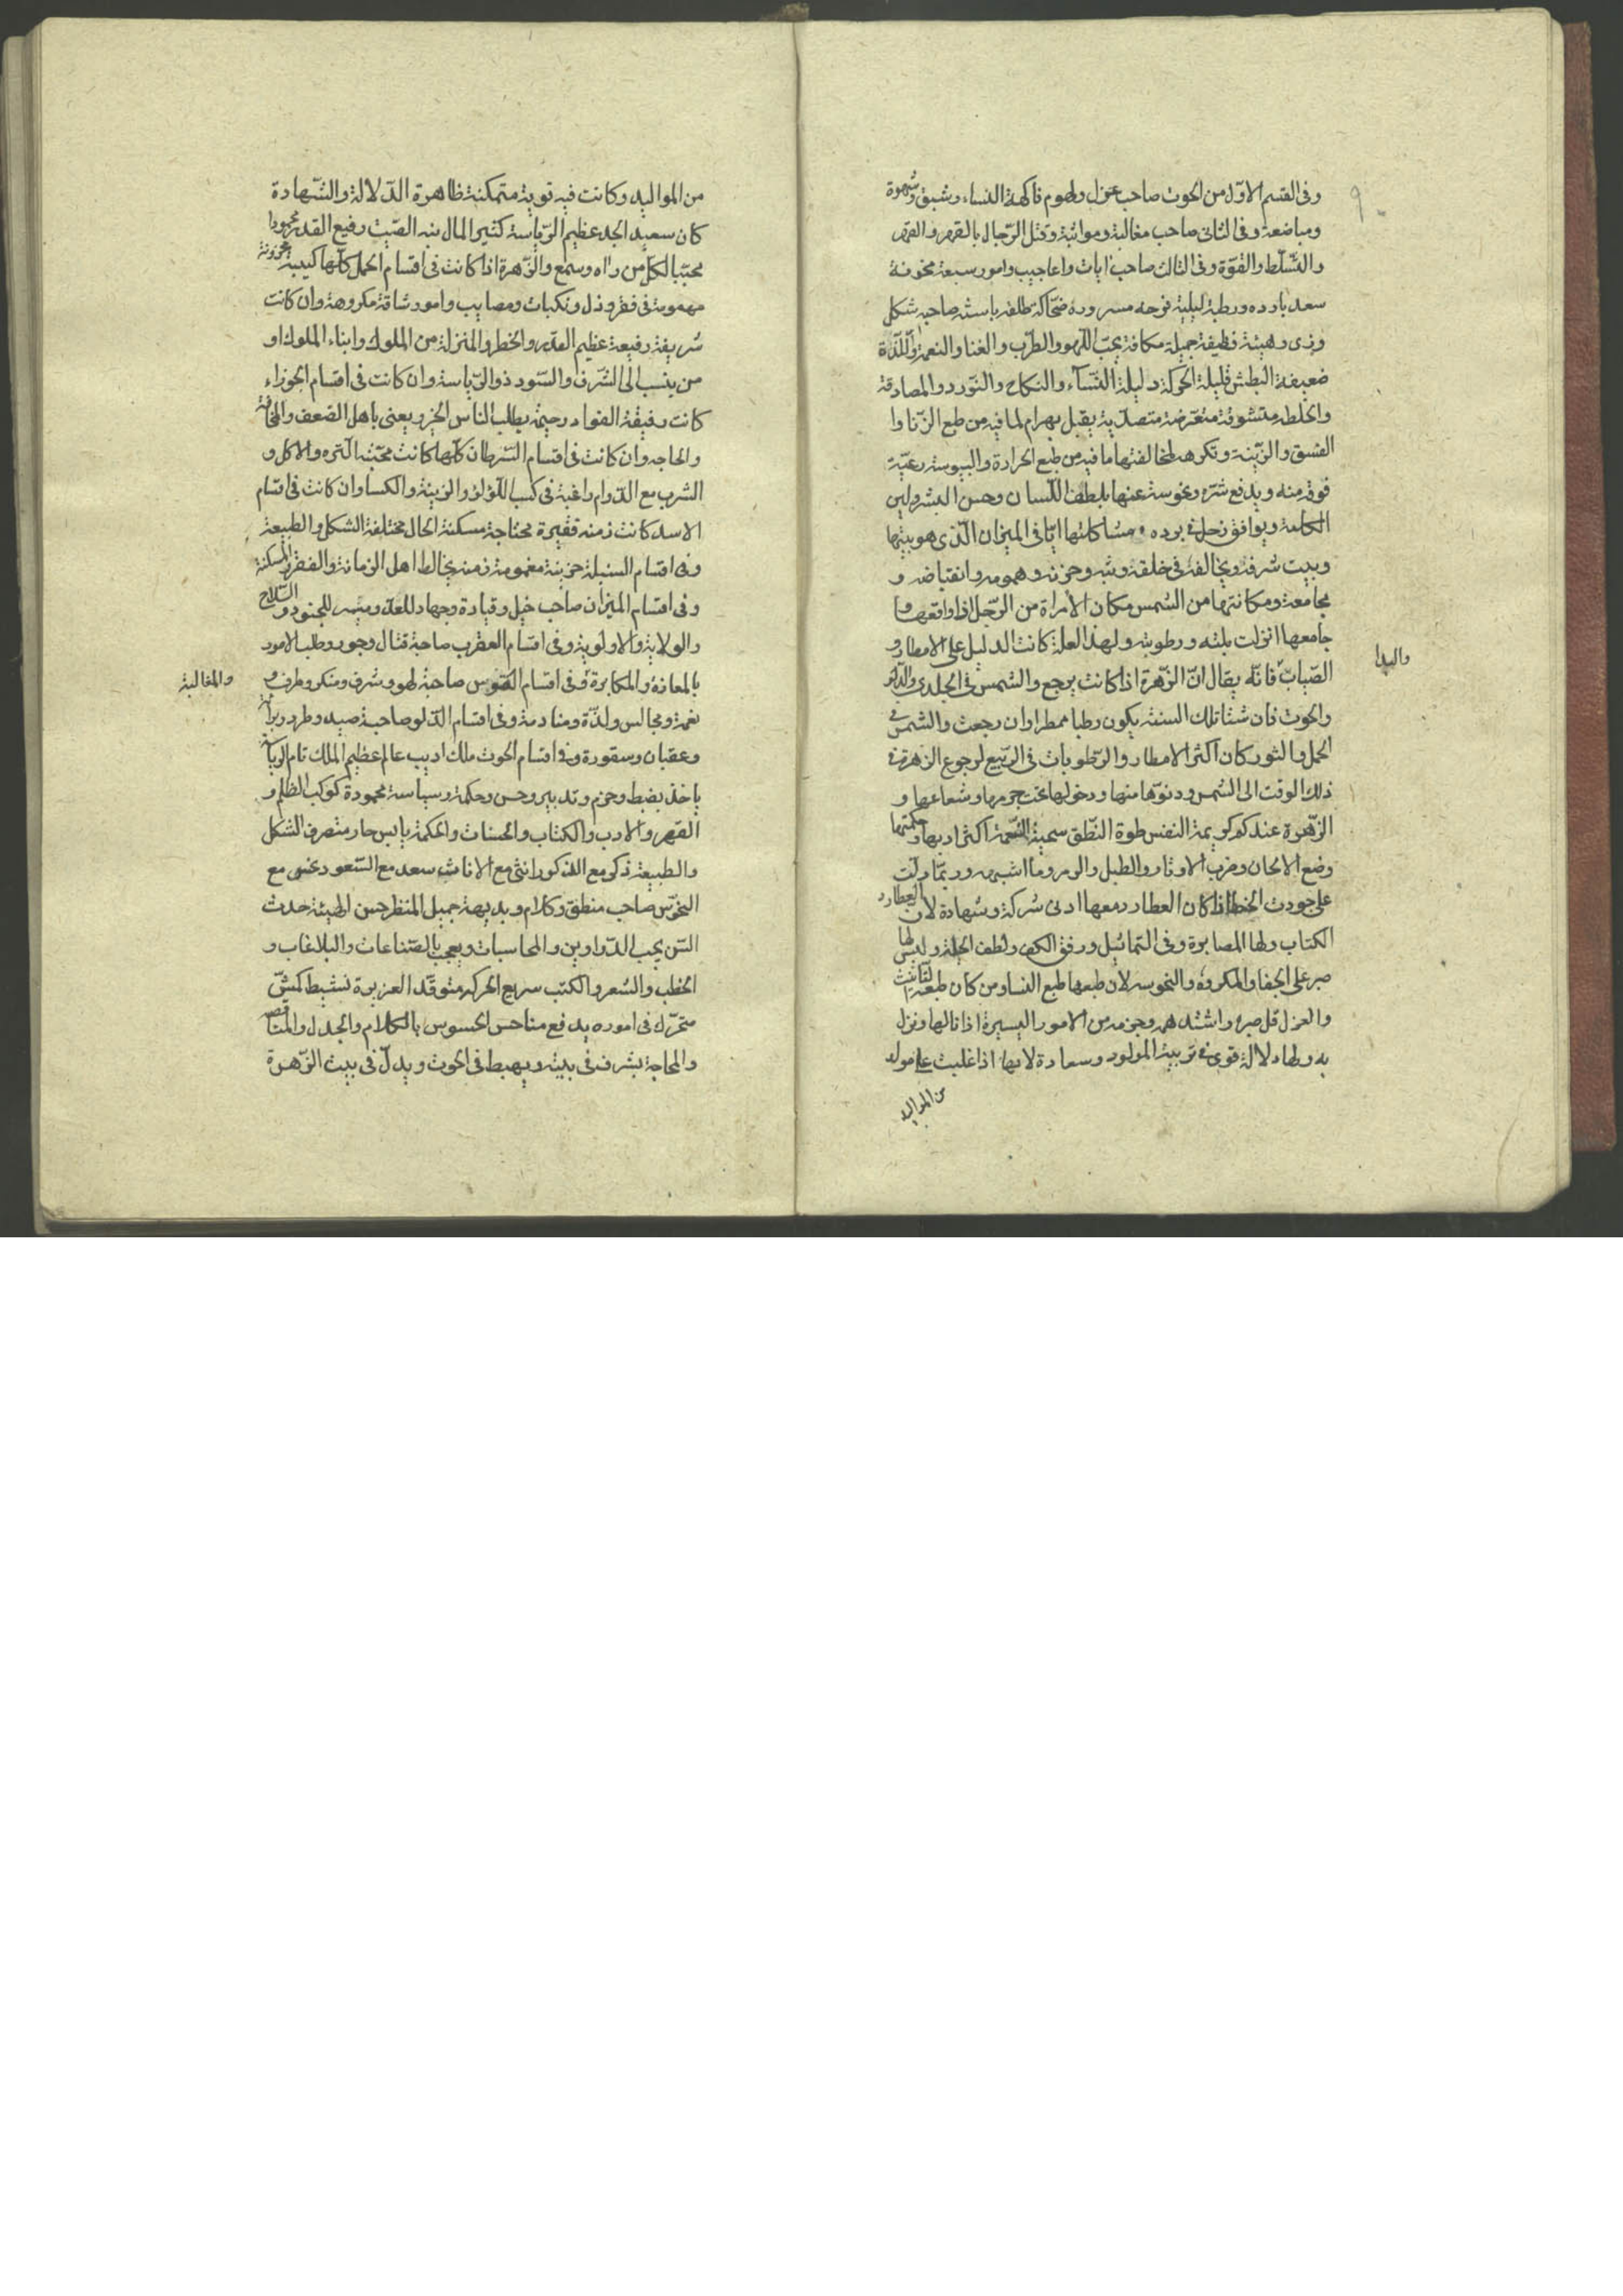 وفى القسم الاوّل من الحوت صاحب غزل ولهوم فاكهة النساء وشبق وشهوة
ومباضعة وفى الثانى صاحب مغالبة ومواثبة وقتل الرّجال بالقهر والقهر
والتّسلّط والقوّة وفى الثالث صاحب ايات واعاجيب وامور سبعة مخوفة
سعد بارده ورطبة ليلية فرحه مسروره ضحّاكة طلقة باسثة صاحبة شكل
وزى وهيئة نظيفة جميلة مكافة يحبّ اللّهو والطّرب والغنا والنعمة واللّذّة
ضعيفة البطش قليلة الحركة دليلة النّسآء والنكاح والتّودد والمصادقة
والخلطه متشوقة متعرّضة متصدّية يقبل بهرام لما فيه من طبع الزّنا وا
الفسق والزّينة وتكرهه لمخالفتها ما فيه من طبع الحرارة واليبوسة رعيّة
فوق منه ويدفع شرّه ونحوسته عنها بلطف اللّسان وحسن البشر ولين
الكلمة ويوافق زحل فى برده ومشاكلتها ايّاه فى الميزان الّذى هو بيتها
وبيت شرفه ويخالفه فى خلقه وبثه وحزنه وهمومه وانقباضه و
مجامعة ومكانتها من الشمس مكان الامراة من الرّجل اذا واقعها وا
جامعها انزلت بلته ورطوبته ولهذا العلة كانت الدليل على الامطار و
الصّباب فانّه يقال انّ الزّهرة اذا كانت يرجع والشمس فى الجلدى والدّلو
والبدا
والحوت فان شتا تلك السنة يكون رطبا ممطرا وان رجعت والشمس فى
الحمل والثور كان اكثر الامطار والرّطوبات فى الرّبيع لرجوع الزهرة فى
ذلك الوقت الى الشمس ودنوّها منها ودخولها تحت جرمها وشعاعها و
الزّهرة عندكم كريمة النفس حلوة النّطق سمينة النّغمة اكثر ادبها وحكمتها
وضع الالحان وضرب الاوتار والطبل والزمر وما اشبهه وربّما دلّت
على جودت الخط اذا كان العطارد معها ادنى شركة وشهادة لان العطارد
الكتاب ولها المصابرة وفى التماثيل ورفق الكف ولطف الحيلة وليس لها
صبر على الجفا والمكروه والنحوسه لان طبعها طبع النساء ومن كان طبعه التّأنيث
والعزل قل صبره واشتد همه وجزعه من الامور اليسيرة اذا نالها ونزل
به ولها دلالة قوى فى تربية المولود وسعادة لابها اذا غلبت على مولد
من المواليد
من المواليد وكانت فيه قوية متمكنة ظاهرة الدّلالة والشّهادة
كان سعيد الجد عظيم الرّياسة كثير المال نبه الصّيت رفيع القدر محمودا
محبّبا لكلّ من راه وسمع والزّهرة اذا كانت فى اقسام الحمل كلّها كئيبة محزونة
مهمومة فى فقر وذل ونكبات ومصايب وامور شاقة مكروهة وان كانت
شريفة رفيعة عظيم القدر والخطر والمنزلة من الملوك وابناء الملوك او
من ينسب الى الشّرف والسّودد ذو الرّياسة وان كانت فى اقسام الجوزاء
كانت رقيقة الفواد رحيمة يطلب الناس الخير ويعنى باهل الضعف والمخافة
والحاجه وان كانت فى اقسام السّرطان كلّها كانت محبّثة الشره والاكل و
الشرب مع الدّوام راغبة فى كسب اللؤلؤ والزينة والكسا وان كانت فى اقسام
الاسد كانت زمنه فقيرة محتاجة مسكنة الحال مختلفة الشكل والطبيعة
وفى اقسام السنبلة حزينة مغمومة زمنه يخالط اهل الزمانة والفقر والمسكنة
وفى اقسام الميزان صاحب خيل وقيادة وجهاد للعدّو ميسر للجنود والسّلاح
والولاية والاولوية وفى اقسام العقرب صاحبة قتال وجور وطلب الامور
بالمعانة والمكابرة وفى اقسام القوس صاحبة لهو وشرف ومنكر وطرف و
والمغالبة
نغمة ومجالس ولذّة ومنادمة وفى اقسام الدّلو صاحبة صيد وطرد وبزاة
وعقبان وسقورة وفى اقسام الحوت ملك اديب عالم عظيم الملك تام الرياسة
ياخذ بضبط وحزم وتدبير وحسن وحكمة وسياسة محمودة كوكب الظلم و
القهر والادب والكتاب والحسنات والحكمة يابس حار منصرف الشكل
والطبيعة ذكر مع الذكور انثى مع الاناث سعد مع السّعود نحس مع
النحوس صاحب منطق وكلام وبديهة جميل المنظر حسن الهيئة حدث
السّن يحب الدّواوين والمحاسبات ويعجب بالصّناعات والبلاغات و
الخطب والشعر والكتب سريع الحركه متوقّد الغريزة نشيط كمشّ
متحرّك فى اموره يدفع مناحس الحسوس بالكلام والجدل والمناقصه
والمحاجة يشرف فى بيته ويهبط فى الحوت ويدلّ فى بيت الزّهرة